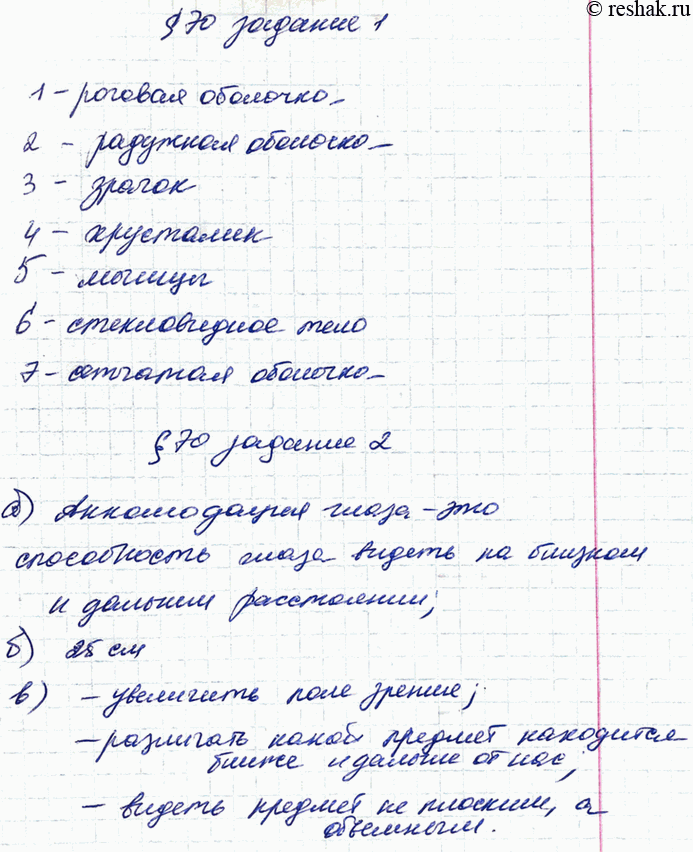 © reshak.ru
§70 задание 1
1 - роговая оболочка
2 - радужная оболочка
3 - зрачок
4 - хрусталик
5 - мышцы
6 - стекловидное тело
7 - сетчатая оболочка
§70 задание 2
а) Аккомодация глаза - это
способность глаза видеть на близком
и дальнем расстоянии;
б) 25 см
в) - увеличить поле зрение;
- различать какой предмет находится
ближе и дальше от нас;
- видеть предмет не плоским, а
объемным.